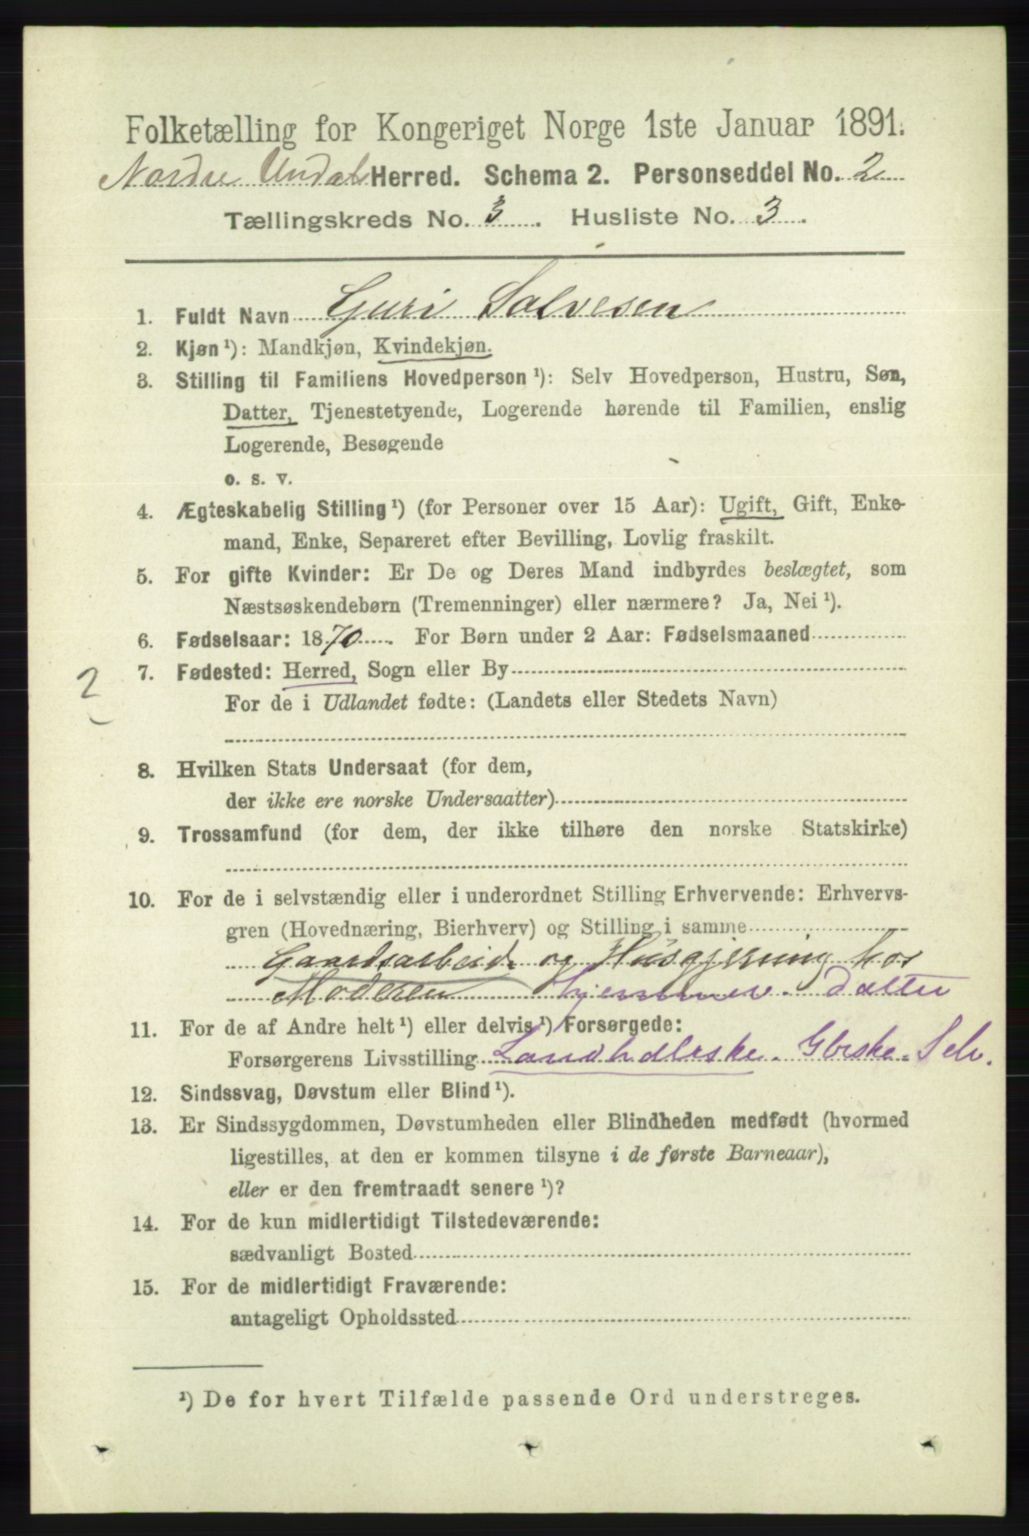 Folketælling for Kongeriget Norge 1ste Januar 1891.
Nordre Undal Herred. Schema 2. Personseddel No. 2
Tællingskreds No. 3. Husliste No. 3.
1. Fuldt Navn Guri Salvesen
2. Kjøn ¹): Mandkjøn, Kvindekjøn.
3. Stilling til Familiens Hovedperson ¹): Selv Hovedperson, Hustru, Søn,
Datter, Tjenestetyende, Logerende hørende til Familien, enslig
Logerende, Besøgende
o. s. v.
4. Ægteskabelig Stilling ¹) (for Personer over 15 Aar): Ugift, Gift, Enke-
mand, Enke, Separeret efter Bevilling, Lovlig fraskilt.
5. For gifte Kvinder: Er De og Deres Mand indbyrdes beslægtet, som
Næstsøskendebørn (Tremenninger) eller nærmere? Ja, Nei ¹).
6. Fødselsaar: 1870. For Børn under 2 Aar: Fødselsmaaned
7. Fødested: Herred, Sogn eller By
2
For de i Udlandet fødte: (Landets eller Stedets Navn)
8. Hvilken Stats Undersaat (for dem,
der ikke ere norske Undersaatter)
9. Trossamfund (for dem, der ikke tilhøre den norske Statskirke)
10. For de i selvstændig eller i underordnet Stilling Erhvervende: Erhvervs-
gren (Hovednæring, Bierhverv) og Stilling i samme
Gaardsarbeide og Husgjerning hos
Moderen hjemmev. Datter
11. For de af Andre helt ¹) eller delvis ¹) Forsørgede:
Forsørgerens Livsstilling Landhdlrske. Gbrske. Selv.
12. Sindssvag, Døvstum eller Blind ¹).
13. Er Sindssygdommen, Døvstumheden eller Blindheden medfødt (hvormed
ligestilles, at den er kommen tilsyne i de første Barneaar),
eller er den fremtraadt senere ¹)?
14. For de kun midlertidigt Tilstedeværende:
sædvanligt Bosted
15. For de midlertidigt Fraværende:
antageligt Opholdssted
¹) De for hvert Tilfælde passende Ord understreges.